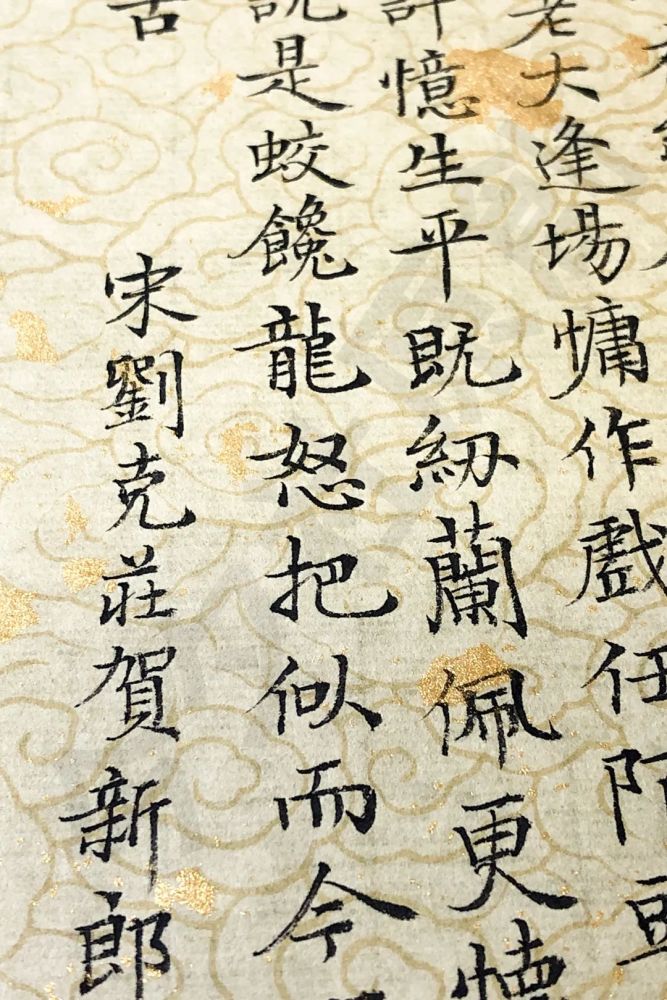 老大逢場慵作戲任
許憶生平既紉蘭佩更懷
說是蛟饞龍怒把似而今
古
宋劉克莊賀新郎